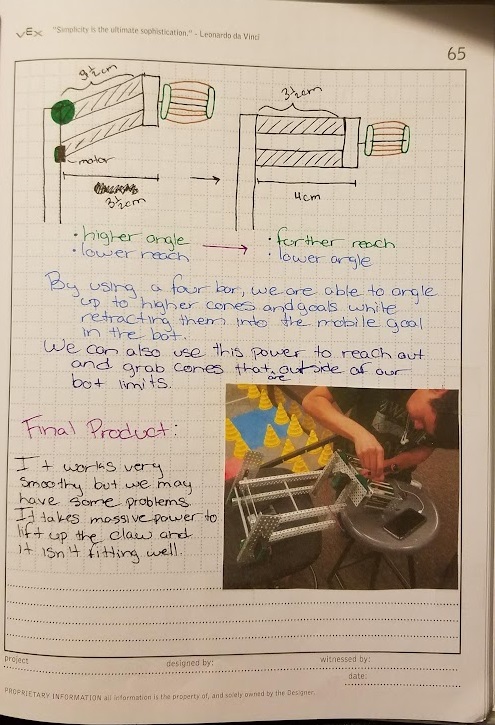 VEX "Simplicity is the ultimate sophistication." - Leonardo da Vinci
65
9½cm
motor
3½cm
3½cm
4cm
• higher angle
• lower reach
• further reach
• lower angle
By using a four bar, we are able to angle
up to higher cones and goals while
retracting them into the mobile goal
in the bot.
We can also use this power to reach out
and grab cones that are outside of our
bot limits.
Final Product:
It works very
smoothy but we may
have some problems.
It takes massive power to
lift up the claw and
it isn't fitting well.
project
designed by:
witnessed by:
date:
PROPRIETARY INFORMATION all information is the property of, and solely owned by the Designer.